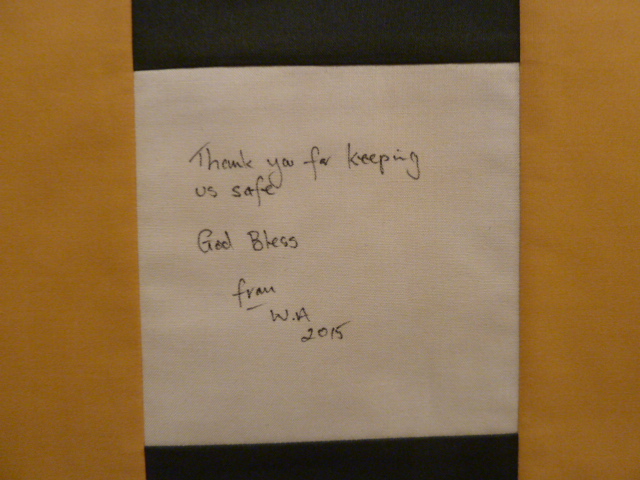 Thank you for keeping
us safe
God Bless
fran
W.A
2015